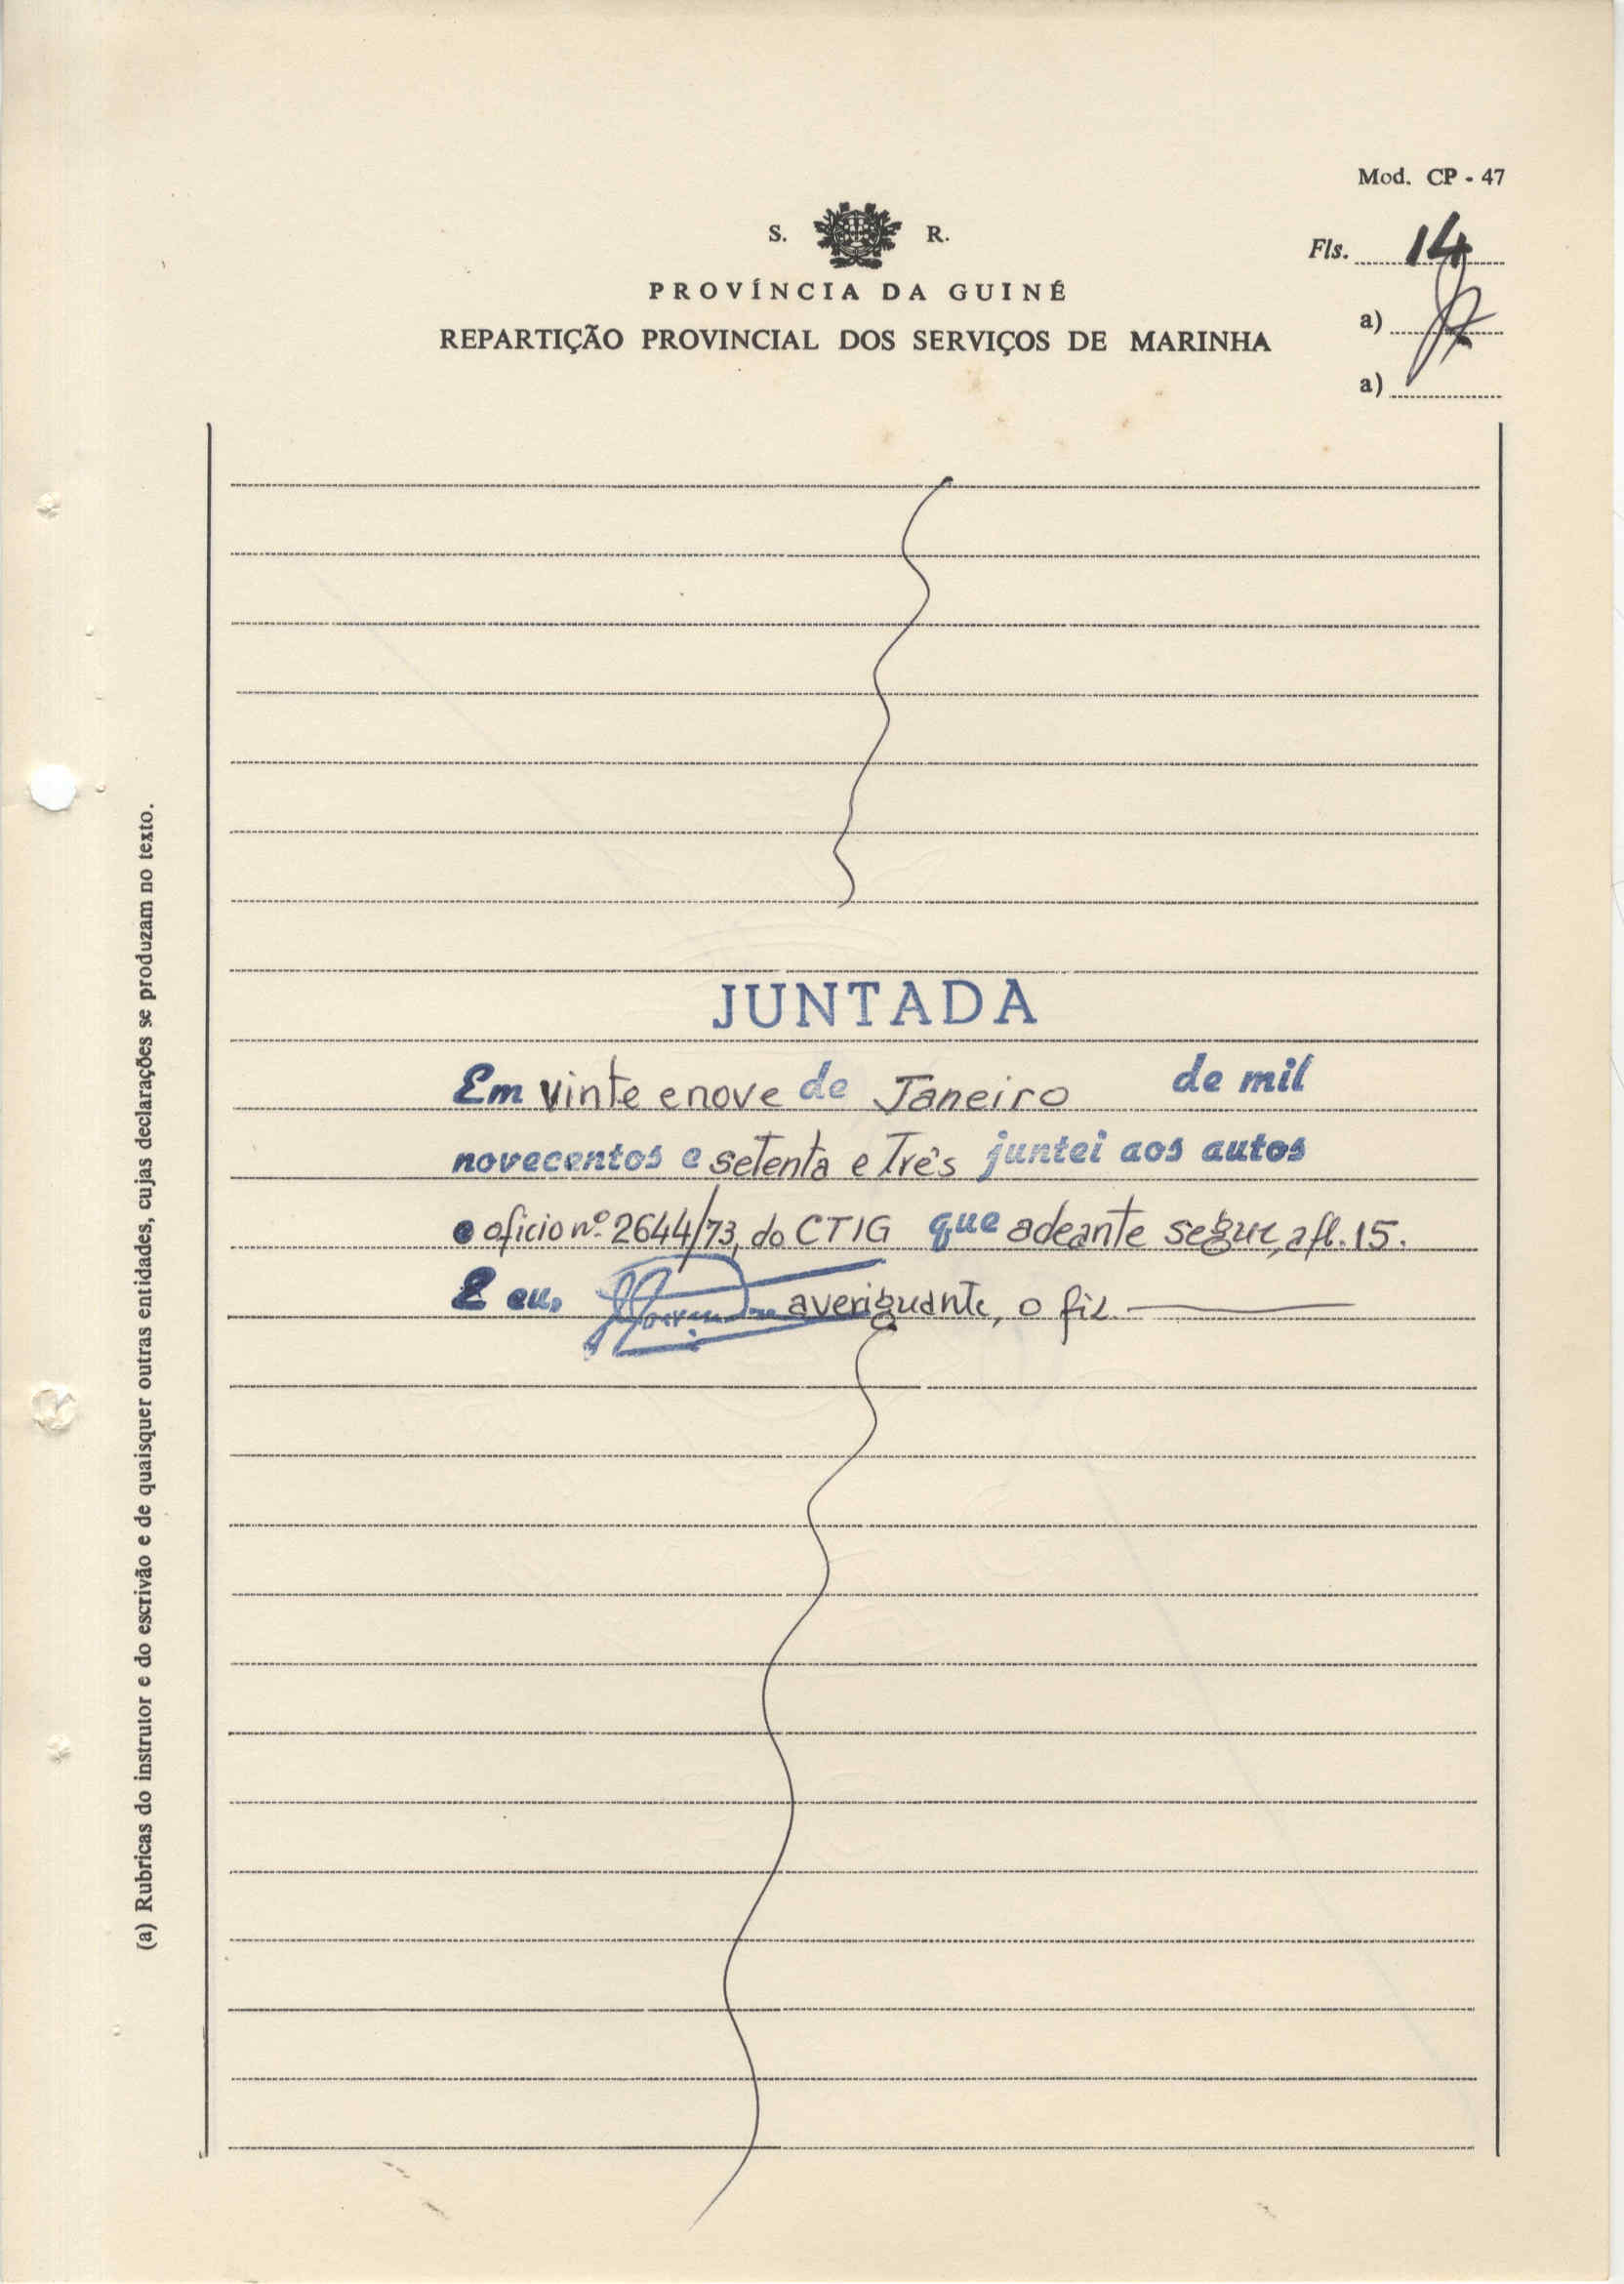 Mod. CP - 47
S. R.
Fls. 14
PROVÍNCIA DA GUINÉ
a)
REPARTIÇÃO PROVINCIAL DOS SERVIÇOS DE MARINHA
a)
JUNTADA
Em vinte e nove de Janeiro de mil
novecentos e setenta e Três juntei aos autos
o oficio nº 2644/73, do CTIG que adeante segue, a fl. 15.
E eu, averiguante, o fiz.
(a) Rubricas do instrutor e do escrivão e de quaisquer outras entidades, cujas declarações se produzam no texto.